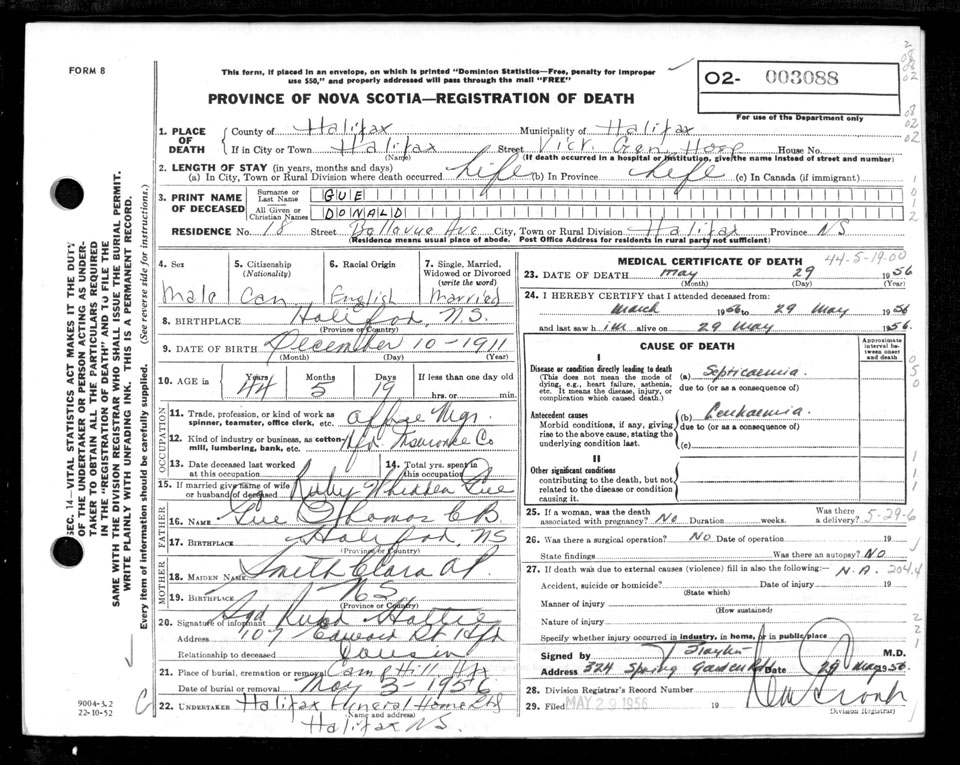 FORM 8
This form, if placed in an envelope, on which is printed "Dominion Statistics—Free, penalty for improper
use $50," and properly addressed will pass through the mail "FREE"
PROVINCE OF NOVA SCOTIA—REGISTRATION OF DEATH
O2- 003088
For use of the Department only
1. PLACE OF DEATH
County of Halifax Municipality of Halifax
If in City or Town Halifax Street Vict. Gen. Hosp House No.
(Name) (If death occurred in a hospital or institution, give the name instead of street and number)
2. LENGTH OF STAY (in years, months and days)
(a) In City, Town or Rural Division where death occurred Life (b) In Province Life (c) In Canada (if immigrant)
3. PRINT NAME OF DECEASED
Surname or Last Name GUE
All Given or Christian Names DONALD
RESIDENCE No. 18 Street Bellevue Ave City, Town or Rural Division Halifax Province NS
(Residence means usual place of abode. Post Office Address for residents in rural parts not sufficient)
4. Sex Male
5. Citizenship (Nationality) Can
6. Racial Origin English
7. Single, Married, Widowed or Divorced (write the word) Married
8. BIRTHPLACE Halifax, N.S.
(Province or Country)
9. DATE OF BIRTH December 10-1911
(Month) (Day) (Year)
10. AGE in Years 44 Months 5 Days 19 If less than one day old hrs. or min.
OCCUPATION
11. Trade, profession or kind of work as spinner, teamster, office clerk, etc. Office Mgr.
12. Kind of industry or business, as cotton mill, lumbering, bank, etc. Hfx Insurance Co
13. Date deceased last worked at this occupation
14. Total yrs. spent in this occupation
15. If married give name of wife or husband of deceased Ruby Whidden Gue
FATHER
16. NAME Gue Thomas C B
17. BIRTHPLACE Halifax, NS
(Province or Country)
MOTHER
18. MAIDEN NAME Smith Clara
19. BIRTHPLACE NS
(Province or Country)
20. Signature of informant Sgd Hattie
Address 107 Edward St Hfx
Relationship to deceased Cousin
21. Place of burial, cremation or removal Camp Hill Hfx
Date of burial or removal May 3-1956
22. UNDERTAKER Halifax Funeral Home Ltd
(Name and address)
Halifax NS.
MEDICAL CERTIFICATE OF DEATH
44-5-19.00
23. DATE OF DEATH May 29 1956
(Month) (Day) (Year)
24. I HEREBY CERTIFY that I attended deceased from:
March 1956 to 29 May 1956
and last saw him alive on 29 May 1956.
CAUSE OF DEATH
Approximate interval between onset and death
I
Disease or condition directly leading to death
(This does not mean the mode of dying, e.g., heart failure, asthenia, etc. It means the disease, injury, or complication which caused death.)
(a) Septicaemia.
due to (or as a consequence of)
Antecedent causes
Morbid conditions, if any, giving rise to the above cause, stating the underlying condition last.
(b) Leukaemia.
due to (or as a consequence of)
(c)
II
Other significant conditions
contributing to the death, but not related to the disease or condition causing it.
25. If a woman, was the death associated with pregnancy? No Duration weeks. Was there a delivery? 5-29-6
26. Was there a surgical operation? NO Date of operation 19
State findings Was there an autopsy? NO
27. If death was due to external causes (violence) fill in also the following:— N.A. 204.4
Accident, suicide or homicide? Date of injury 19
(State which)
Manner of injury
(How sustained)
Nature of injury
Specify whether injury occurred in industry, in home, or in public place
Signed by M.D.
Address 324 Spring Garden Rd Date 29 May 1956.
28. Division Registrar's Record Number
29. Filed MAY 29 1956 19
Division Registrar
SEC. 14—VITAL STATISTICS ACT MAKES IT THE DUTY
OF THE UNDERTAKER OR PERSON ACTING AS UNDER-
TAKER TO OBTAIN ALL THE PARTICULARS REQUIRED
IN THE "REGISTRATION OF DEATH" AND TO FILE THE
SAME WITH THE DIVISION REGISTRAR WHO SHALL ISSUE THE BURIAL PERMIT.
WRITE PLAINLY WITH UNFADING INK. THIS IS A PERMANENT RECORD.
Every item of information should be carefully supplied. (See reverse side for instructions.)
9004-3.2
22-10-52